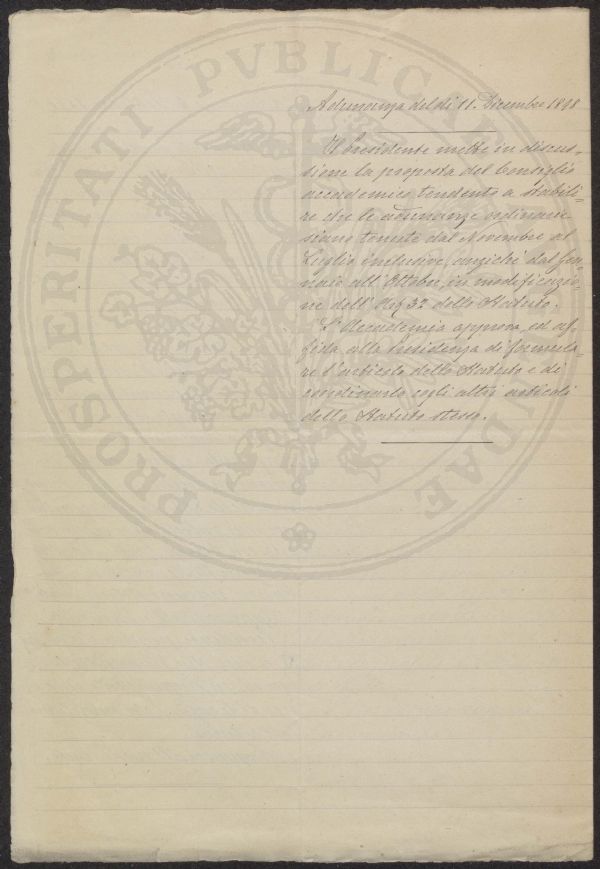 PROSPERITATI PVBLICAE AVGENDAE
Adunanza del dì 11. Dicembre 1898
Il Presidente mette in discus-
sione la proposta del Consiglio
accademico tendente a stabili-
re che le adunanze ordinarie
siano tenute dal Novembre al
Luglio inclusive, anziché dal Gen-
naio all'Ottobre, in modificazio-
ne dell'Art. 3º dello Statuto.
L'Accademia approva, ed af-
fida alla Presidenza di formula-
re l'articolo dello Statuto e di
coordinarlo cogli altri articoli
dello Statuto stesso.